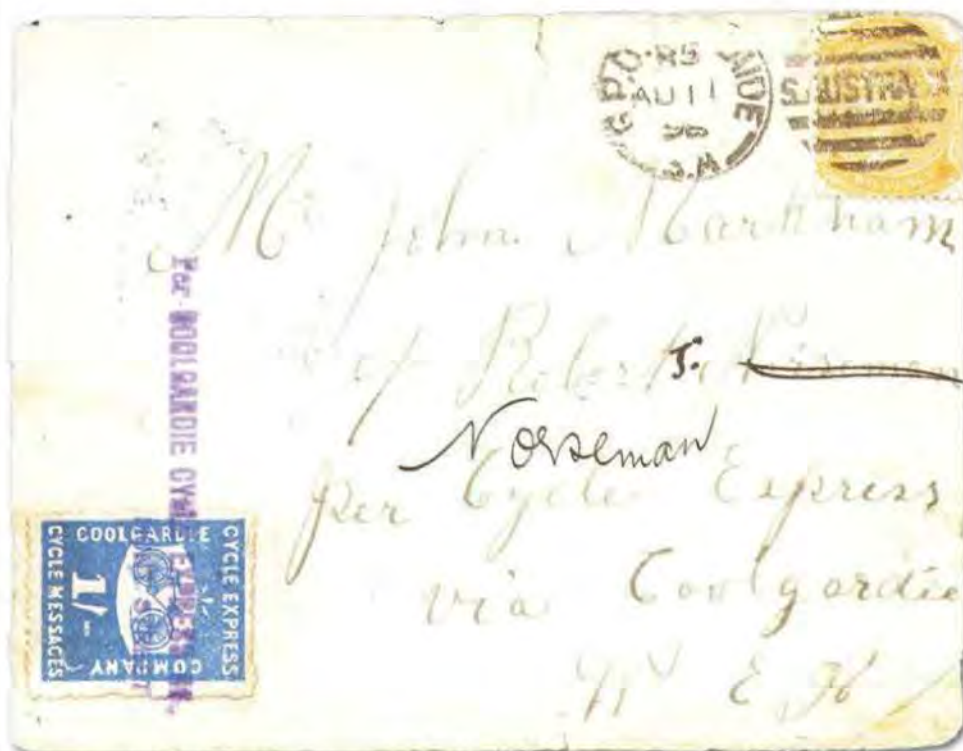 G.P.O. R5 AIDE
AU 11
96
S. AUSTRA
Mr John Markham
c/ Robert
S.
Norseman
per Cycle Express
via Coolgardie
W
Per COOLGARDIE CYCLE EXPRESS
COOLGARDIE
CYCLE EXPRESS
COMPANY
CYCLE MESSAGES
1/-